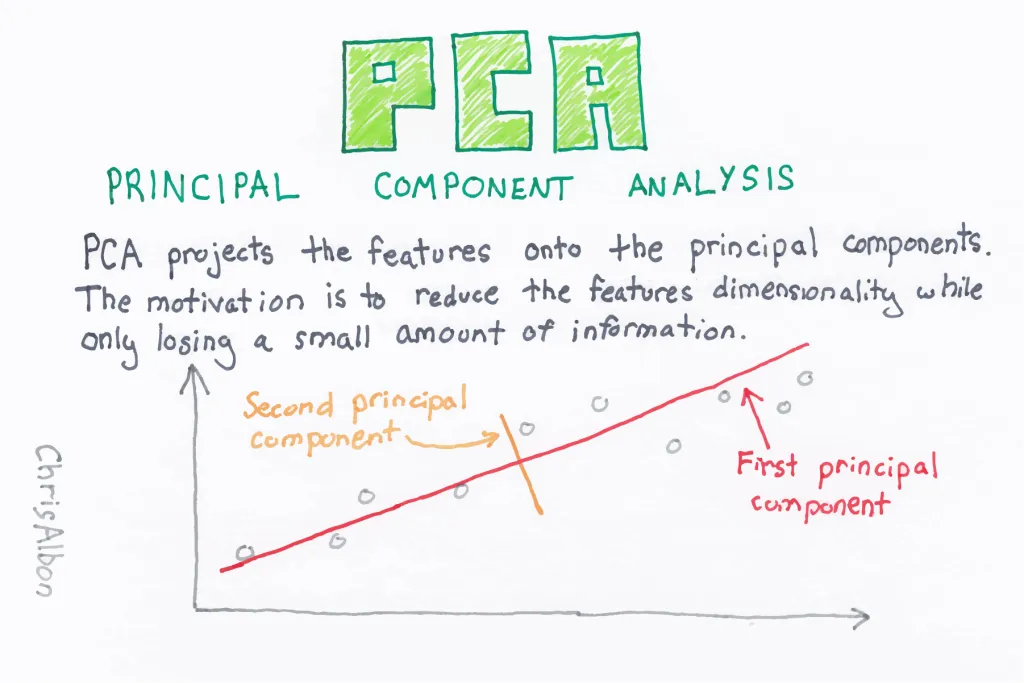 PCA
PRINCIPAL COMPONENT ANALYSIS
PCA projects the features onto the principal components.
The motivation is to reduce the features dimensionality while
only losing a small amount of information.
Second principal
component
First principal
component
ChrisAlbon